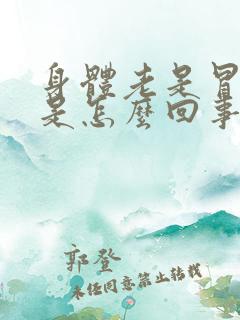 身體老是冒
是怎麼回事
郭登
未经同意禁止转载